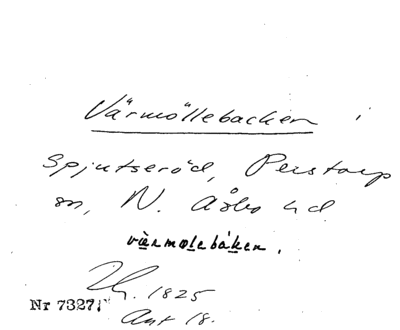 Värmöllebacken i
Spjutseröd, Perstorp
sn, N. Åsbo hd
värmolebáken.
1825
Nr 7327.
Ant 18.